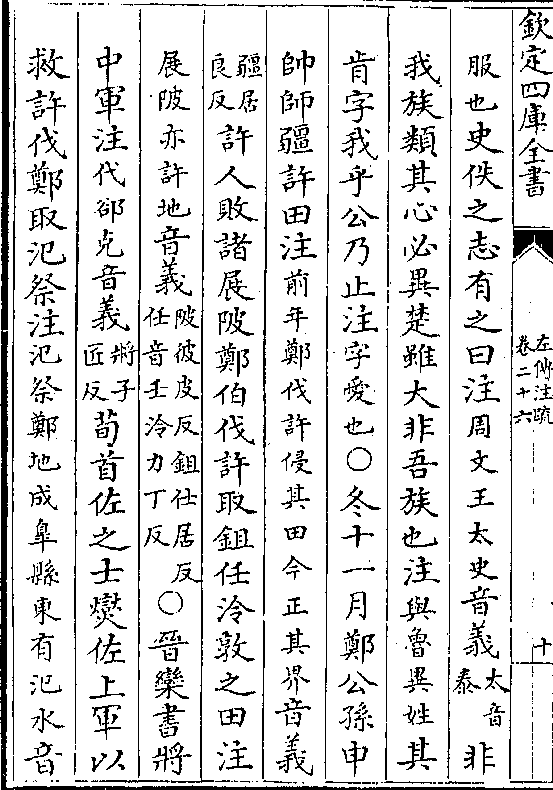 欽定四庫全書
左傳注疏
卷二十六
十
服也史佚之志有之曰注周文王太史音義太音泰非
我族類其心必異楚雖大非吾族也注與魯異姓其
肯字我乎公乃止注字愛也○冬十一月鄭公孫申
帥師疆許田注前年鄭伐許侵其田今正其界音義
疆居良反許人敗諸展陂鄭伯伐許取鉏任泠敦之田注
展陂亦許地音義陂彼皮反鉏仕居反任音壬泠力丁反○晉欒書將
中軍注代郤克音義將子匠反荀首佐之士燮佐上軍以
救許伐鄭取氾祭注氾祭鄭地成臯縣東有氾水音